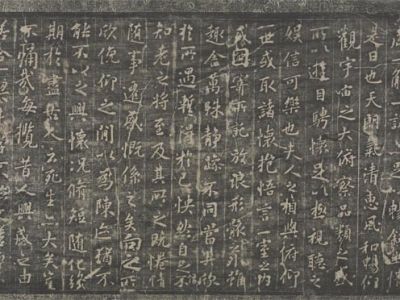 觴一詠亦足以暢敘
是日也天朗氣清惠風和暢仰
觀宇宙之大俯察品類之盛
所以遊目騁懷足以極視聽之
娛信可樂也夫人之相與俯仰
一世或取諸懷抱悟言一室之內
或因寄所託放浪形骸之外雖
趣舍萬殊靜躁不同當其欣
於所遇暫得於己快然自足不
知老之將至及其所之既惓情
隨事遷感慨係之矣向之所
欣俛仰之間以為陳迹猶不
能不以之興懷況脩短隨化終
期於盡古人云死生亦大矣豈
不痛哉每攬昔人興感之由